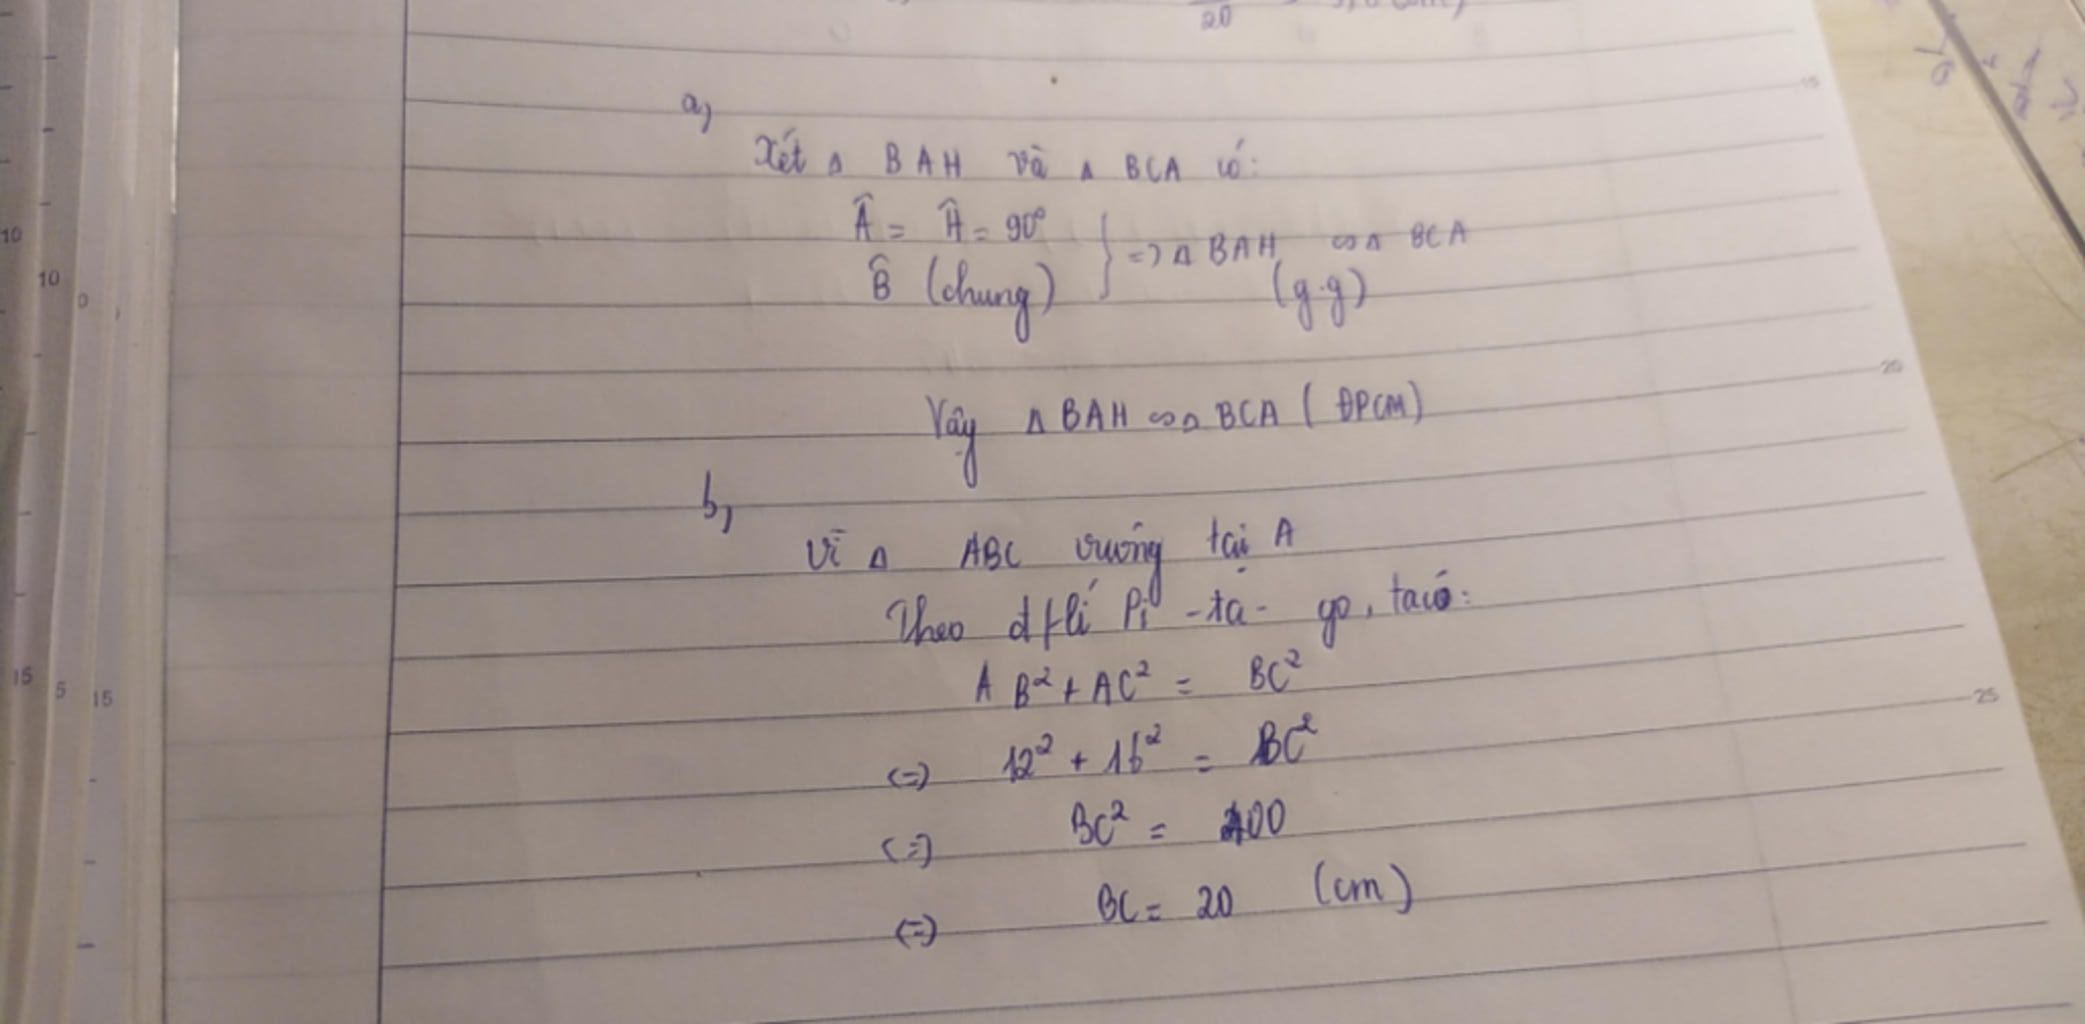 20
a,
Xét Δ BAH và Δ BCA có:
Â = Ĥ = 90°
B̂ (chung) } => Δ BAH ∽ Δ BCA
(g.g)
Vậy Δ BAH ∽ Δ BCA ( ĐPCM)
b,
Vì Δ ABC vuông tại A
Theo đ/lí Pi -ta- go, ta có:
AB² + AC² = BC²
<=> 12² + 16² = BC²
<=> BC² = 400
<=> BC = 20 (cm)
15
20
25
10
10
0
15
5
15